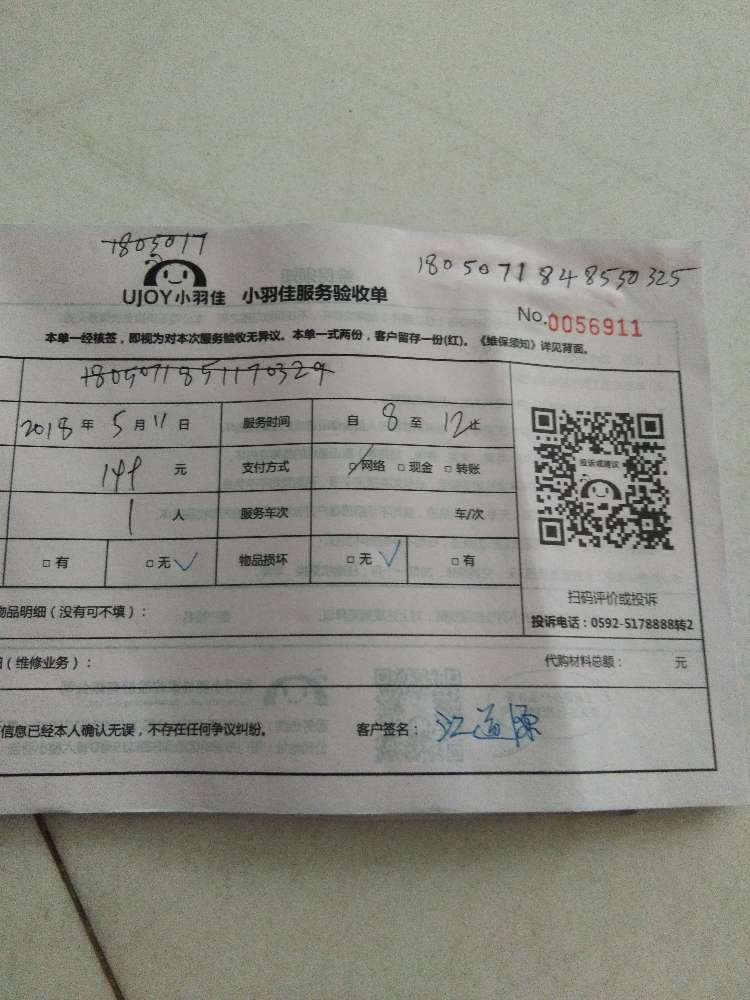 1805017
1805071848550325
UJOY小羽佳 小羽佳服务验收单
No.0056911
本单一经核签,即视为对本次服务验收无异议。本单一式两份,客户留存一份(红)。《维保须知》详见背面。
1805071851170329
2018年 5月11日 服务时间 自 8 至 12止
144 元 支付方式 □网络 □现金 □转账
投诉或建议
1 人 服务车次 车/次
□有 □无 物品损坏 □无 □有
扫码评价或投诉
物品明细(没有可不填): 投诉电话:0592-5178888转2
(维修业务): 代购材料总额: 元
信息已经本人确认无误,不存在任何争议纠纷。 客户签名:江道源